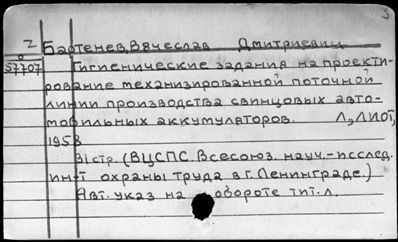 Z Бартенев, Вячеслав Дмитриевич
57707 Гигиенические задания на проекти-
рование механизированной поточной
линии производства свинцовых авто-
мобильных аккумуляторов. Л, ЛИОТ,
1958
31 стр. (ВЦСПС. Всесоюз. науч.-исслед.
ин-т охраны труда в г. Ленинграде.)
Авт. указ на обороте тит. л.